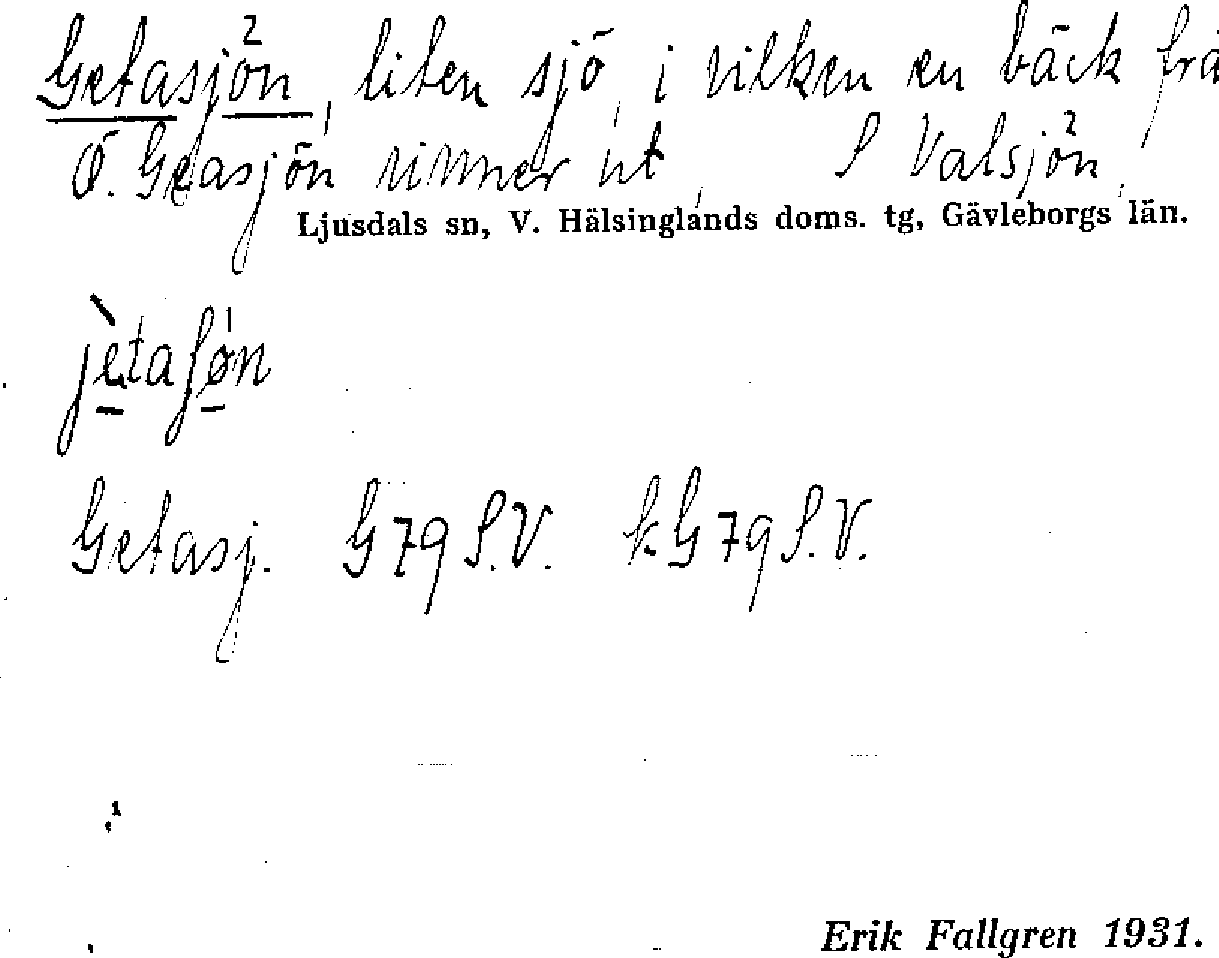 Getasjön², liten sjö, i vilken en bäck frå
Ö. Geasjön rinner ut, S Valsjön²,
Ljusdals sn, V. Hälsinglands doms. tg, Gävleborgs län.
Getasj. G79 S.V. k. G79 S.V.
Erik Fallgren 1931.